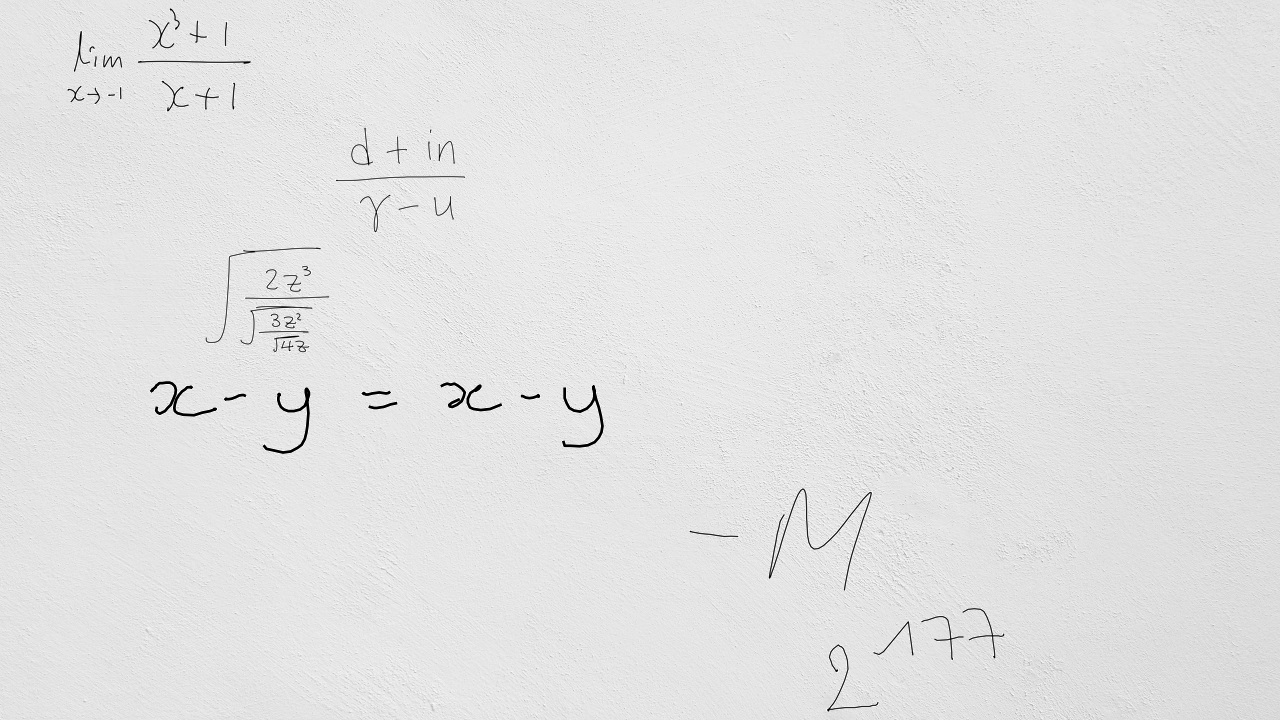 \lim_{x \to -1} \frac{x^3+1}{x+1}
\frac{d+in}{\gamma-u}
\sqrt{\frac{2z^3}{\sqrt{\frac{3z^2}{\sqrt{4z}}}}}
x-y=x-y
-M
2^{177}